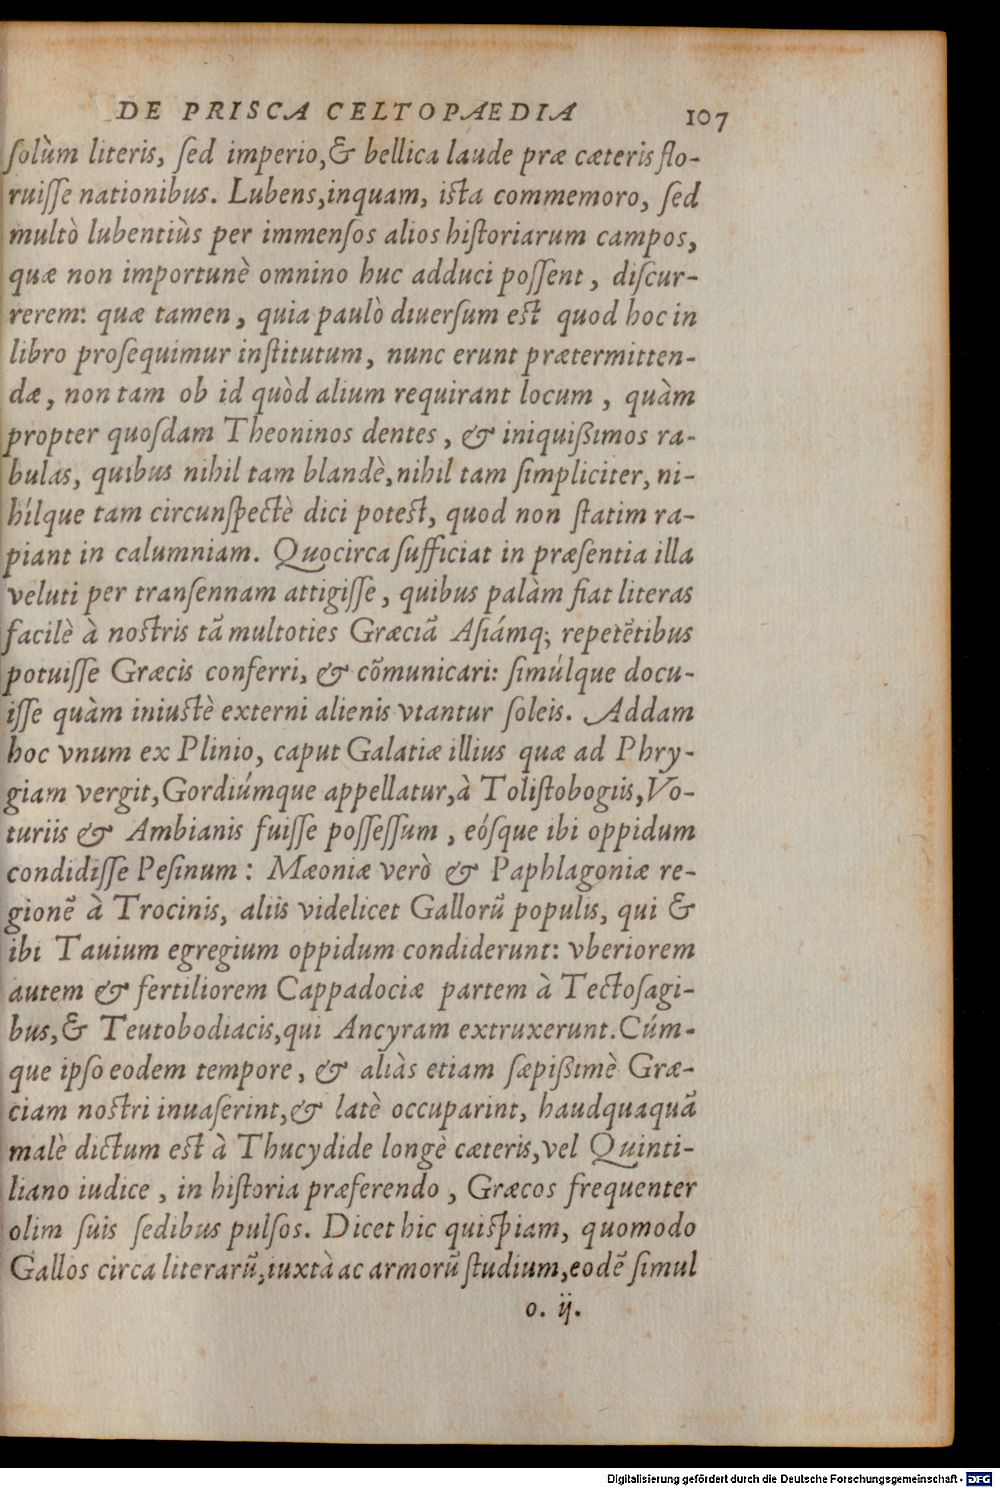 DE PRISCA CELTOPAEDIA 107
ſolùm literis, ſed imperio,& bellica laude præ cæteris flo-
ruiſſe nationibus. Lubens,inquam, iſta commemoro, ſed
multò lubentiùs per immenſos alios hiſtoriarum campos,
quæ non importunè omnino huc adduci poſſent, diſcur-
rerem: quæ tamen, quia paulò diuerſum eſt quod hoc in
libro proſequimur inſtitutum, nunc erunt prætermitten-
dæ, non tam ob id quòd alium requirant locum, quàm
propter quoſdam Theoninos dentes, & iniquißimos ra-
bulas, quibus nihil tam blandè,nihil tam ſimpliciter, ni-
hílque tam circunſpectè dici poteſt, quod non ſtatim ra-
piant in calumniam. Quocirca ſufficiat in præſentia illa
veluti per tranſennam attigiſſe, quibus palàm fiat literas
facilè à noſtris tā multoties Græciā Aſiámq; repetētibus
potuiſſe Græcis conferri, & cōmunicari: ſimúlque docu-
iſſe quàm iniuſtè externi alienis vtantur ſoleis. Addam
hoc vnum ex Plinio, caput Galatiæ illius quæ ad Phry-
giam vergit,Gordiúmque appellatur,à Toliſtobogiis,Vo-
turiis & Ambianis fuiſſe poſſeſſum, eóſque ibi oppidum
condidiſſe Peſinum: Mæoniæ verò & Paphlagoniæ re-
gionē à Trocinis, aliis videlicet Gallorū populis, qui &
ibi Tauium egregium oppidum condiderunt: vberiorem
autem & fertiliorem Cappadociæ partem à Tectoſagi-
bus,& Teutobodiacis,qui Ancyram extruxerunt.Cúm-
que ipſo eodem tempore, & aliàs etiam ſæpißimè Græ-
ciam noſtri inuaſerint,& latè occuparint, haudquaquā
malè dictum eſt à Thucydide longè cæteris,vel Quinti-
liano iudice, in hiſtoria præferendo, Græcos frequenter
olim ſuis ſedibus pulſos. Dicet hic quiſpiam, quomodo
Gallos circa literarū,iuxtà ac armorū ſtudium,eodē ſimul
o. ij.
Digitalisierung gefördert durch die Deutsche Forschungsgemeinschaft - DFG